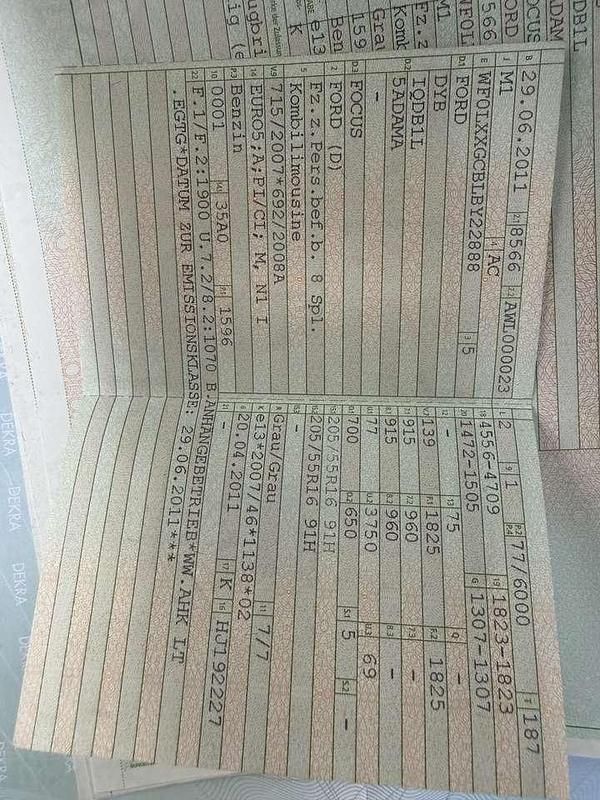 B 29.06.2011 2.1 8566 2.2 AWL000023
J M1 4 AC
E WF0LXXGCBLBY22888 3 5
D.1 FORD
D.2 DYB
IQDB1L
5ADAMA
-
D.3 FOCUS
2 FORD (D)
5 Fz.z.Pers.bef.b. 8 Spl.
Kombilimousine
V.9 715/2007*692/2008A
14 EURO5;A;PI/CI; M, N1 I
P.3 Benzin
10 0001 14.1 35A0 P.1 1596
22 F.1/F.2:1900 U.7.2/8.2:1070 B.ANHANGEBETRIEB*WW.AHK LT
.EGTG*DATUM ZUR EMISSIONSKLASSE: 29.06.2011***
L 2 9 1 P.2/P.4 77/6000 T 187
18 4556-4709 19 1823-1823
20 1472-1505 G 1307-1307
12 - 13 75 Q -
V.7 139 F.1 1825 F.2 1825
7.1 915 7.2 960 7.3 -
8.1 915 8.2 960 8.3 -
U.1 77 U.2 3750 U.3 69
O.1 700 O.2 650 S.1 5 S.2 -
15.1 205/55R16 91H
15.2 205/55R16 91H
15.3 -
R Grau/Grau 11 7/7
K e13*2007/46*1138*02
6 20.04.2011 17 K 16 HJ192227
21 -
DB1L
ADAM
FOCUS
ORD
566
M1
Fz.z
Komb
159
Grau
Ben
e13
K
DEKRA
DEKRA
DEKRA
DEKRA